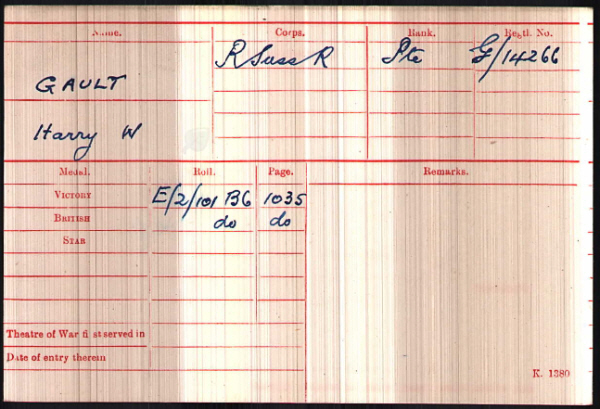 Name. Corps. Rank. Regtl. No.
R Suss R Pte G/14266
GAULT
Harry W
Medal. Roll. Page. Remarks.
VICTORY E/2/101 B6 1035
BRITISH do do
STAR
Theatre of War first served in
Date of entry therein
K. 1380